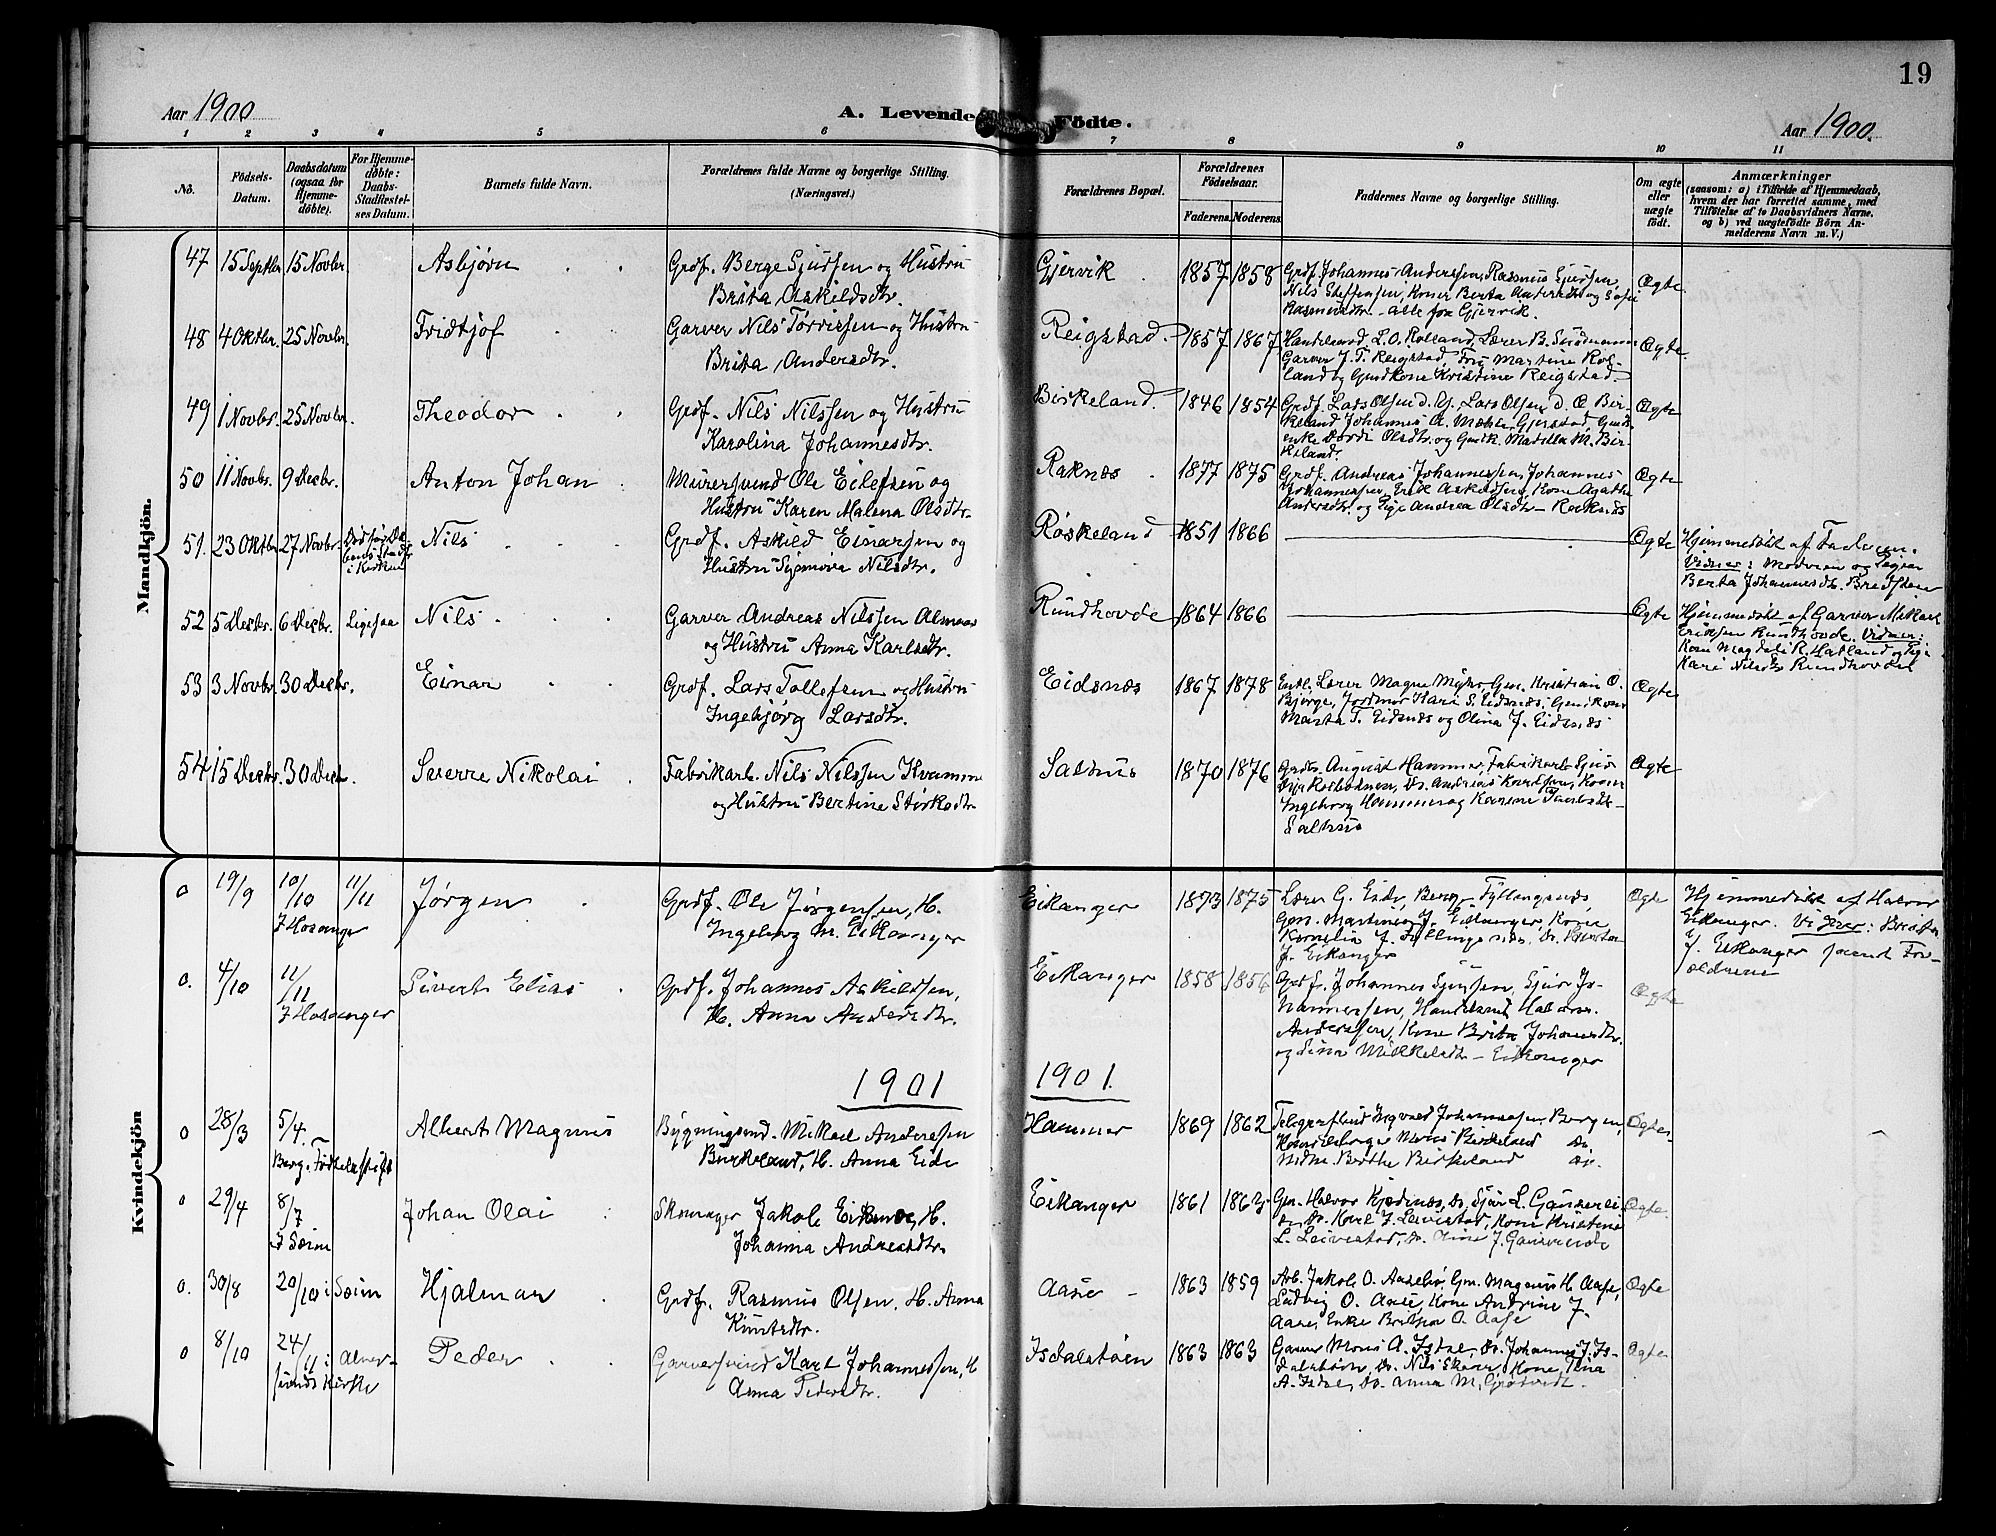 19
Aar 1900
A. Levende Födte.
Aar 1900.
1 2 3 4 5 6 7 8 9 10 11
No.
Födsels-Datum.
Daabsdatum (ogsaa for Hjemme-döbte).
For Hjemme-döbte: Daabs-Stadfestel-ses Datum.
Barnets fulde Navn.
Forældrenes fulde Navne og borgerlige Stilling.
(Næringsvei.)
Forældrenes Bopæl.
Forældrenes Födselsaar.
Faderens. Moderens.
Faddernes Navne og borgerlige Stilling.
Om ægte eller uægte födt.
Anmærkninger
(saasom: a) i Tilfælde af Hjemmedaab,
hvem der har forrettet samme, med
Tilföielse af to Daabsvidners Navne,
og b) ved uægtefödte Börn An-
melderens Navn m. V.)
Mandkjön.
47 15 Septbr. 15 Novbr. Asbjørn Grdf. Berge Sjursen og Hustru
Brita Askildsdtr.
Gjervik 1857 1858 Grdf. Johannes Anderssen, Rasmus Sjursen,
Nils Steffensen, Koner Berta Andersdtr og
Rasmusdtr - alle fra Gjervik.
Ægte.
48 4 Oktbr. 25 Novbr. Fridtjof Garver Nils Torrissen og Hustru
Brita Andersdtr.
Reigstad. 1857 1867 L. O. Rolland, Lærer B.
Garver J. T. Reigstad, Fru Martine Rol-
land og Gmdkone Kristine Reigstad.
Ægte.
49 1 Novbr. 25 Novbr. Theodor Grdf. Nils Nilssen og Hustru
Karolina Johannesdtr.
Birkeland. 1846 1854 Grdf. Lars Olsen d. Y., Lars Olsen d. Æ Bir-
keland Johannes A. Mæhle Gjerstad,
enke Dordi Olsdtr. og Matilda M. Bir-
keland.
Ægte
50 11 Novbr. 9 Decbr. Anton Johan Murersvend Ole Eilefsen og
Hustru Karen Malena Olsdtr.
Raknæs 1877 1875 Grdf. Andreas Johannessen, Johannes
Johannessen, Erik Askildsen, Kone Agathe
Andersdtr. og Pige Andrea Olsdtr - Raknæs
Ægte
51. 23 Oktbr. 27 Novbr. Nils Grdf. Askild Einarsen og
Hustru Nilsdtr.
Røskeland 1851 1866
Ægte Hjemmedøbt af Faderen.
Vidner: Moderen og Pigen
Berta Johannesdtr.
52 5 Decbr. 6 Decbr. Ligesaa Nils Garver Andreas Nilssen Almaas
og Hustru Anna Karlsdtr.
Rundhovde 1864 1866
Ægte Hjemmedøbt af Garver Mikael
Eriksen Rundhovde. Vidner:
Kone Magdeli R. Hatland og Pige
Kari Nilsdtr Rundhovde
53 3 Novbr. 30 Decbr. Einar Grdf. Lars Tollefsen og Hustru
Ingebjørg Larsdtr.
Eidsnæs 1867 1878 Lærer Magne Gm. Kristian O.
Bjørge, Jordmor Kari S. Eidsnæs,
Marta T. Eidsnæs og Olina J. Eidsnæs
Ægte
54 15 Decbr. 30 Decbr. Sverre Nikolai Fabrikarb. Nils Nilssen Kvamme
og Hustru Bertine Styrksdtr
Salhus 1870 1876 August Hammer, Fabrikarb. Sjur
Do. Andreas Knudsen, Koner
Ingeborg Hammer og Karine
Salhus
Ægte
Kvindekjön
0 19/9 10/10 11/11 Jørgen Grdf. Ole Jørgensen, H.
i Hosanger Ingeborg M. Eikanger
Eikanger 1873 1875 Lærer G. Eide, Fyllingsnæs
Gm. Martinius J. Eikanger, Kone
Kornelia J. Fyllingsnæs, Do.
J. Eikanger
Ægte Hjemmedøbt af Halvor
Eikanger. Vidner:
J. Eikanger samt For-
ældrene
0. 4/10 11/11 Sivert Elias Grdf. Johannes Askildsen,
i Hosanger H. Anna Andersdtr.
Eikanger 1858 1856 Grdf. Johannes Sjursen, Sjur Jo-
hannessen, Handelsmd. Halvor
Anderssen, Kone Brita Johannesdtr.
og Sina Mikkelsdtr - Eikanger
Ægte
1901 1901.
0 28/3 5/4. Albert Magnus Bygningssnd. Mikael Anderssen
Berg. Fødselsstift Birkeland, H. Anna Eide
Hammer 1869 1862 Ingvald Johannessen Bergen,
Mons Birkeland Do
Berthe Birkeland Do.
Ægte
0 29/4 8/7 Johan Olai Skomager Jakob H.
i Sæim Johanna Andersdtr.
Eikanger 1861 1863 Gm. Halvor Kjødnæs, Do. Sjur L.
Do. Karl J. Leivestad, Kone Kristine
L. Leivestad, Do.
Ægte.
0. 30/8 20/10 i Sæim Hjalmar Grdf. Rasmus Olsen, H. Anna
Knutsdtr.
Aase 1863 1859 Arb. Jakob O. Aasebø, Gm. Magnus H. Aase,
Ludvig O. Aase, Kone Andrine J.
Aase, Enke O. Aase
Ægte
0 8/10 24/11 i Alver- Peder Garversvend Karl Johannessen, H
sunds Kirke Anna Pedersdtr.
Isdalstøen 1863 1863 Garver Mons A. Isdal, Do. Johannes J. Is-
dalstøen, Do. Nils Skaar, Kone Tina
A. Isdal, Do. Anna M.
Ægte